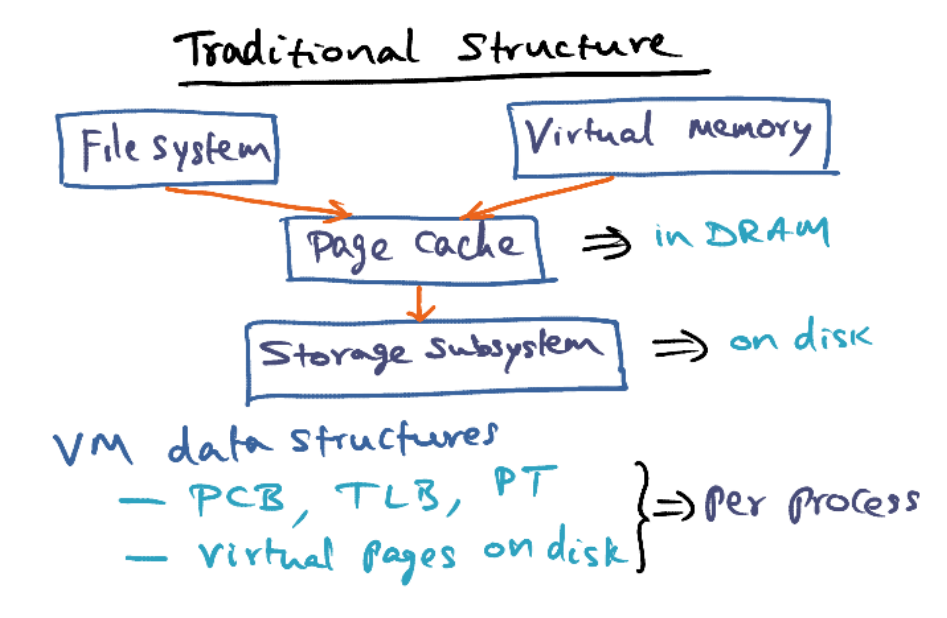 Traditional Structure
File system
Virtual memory
Page Cache ⇒ in DRAM
Storage Subsystem ⇒ on disk
VM data structures
— PCB, TLB, PT
— Virtual pages on disk
} ⇒ Per process